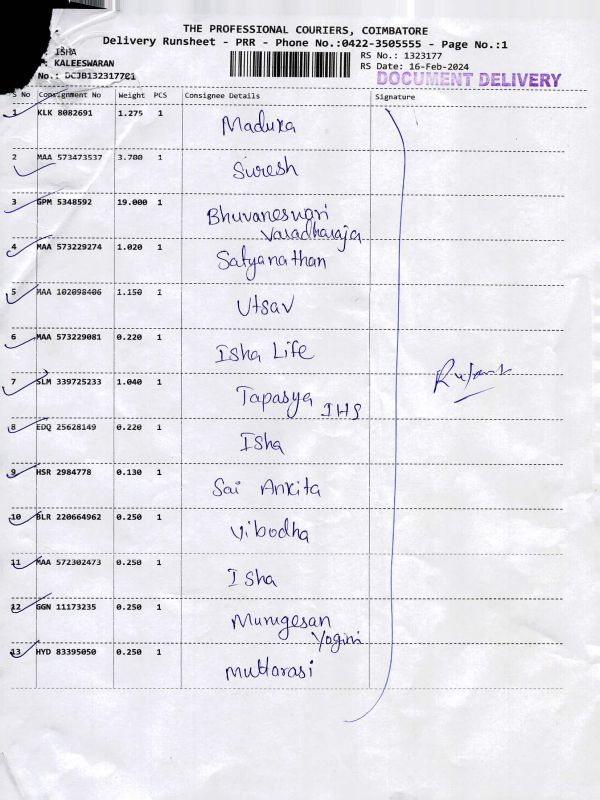 THE PROFESSIONAL COURIERS, COIMBATORE
Delivery Runsheet - PRR - Phone No.:0422-3505555 - Page No.:1
: ISHA
: KALEESWARAN
No.: DCJB132317721
RS No.: 1323177
RS Date: 16-Feb-2024
DOCUMENT DELIVERY
S No Consignment No Weight PCS Consignee Details Signature
1 KLK 8082691 1.275 1 Madura
2 MAA 573473537 3.700 1 Suresh
3 GPM 5348592 19.000 1 Bhuvaneswari
Varadharaja
4 MAA 573229274 1.020 1 Satyanathan
5 MAA 102098406 1.150 1 Utsav
6 MAA 573229081 0.220 1 Isha Life
7 SLM 339725233 1.040 1 Tapasya IHS
8 EDQ 25628149 0.220 1 Isha
9 HSR 2984778 0.130 1 Sai Ankita
10 BLR 220664962 0.250 1 Vibodha
11 MAA 572302473 0.250 1 Isha
12 GGN 11173235 0.250 1 Murugesan
Yogini
13 HYD 83395050 0.250 1 Muttarasi